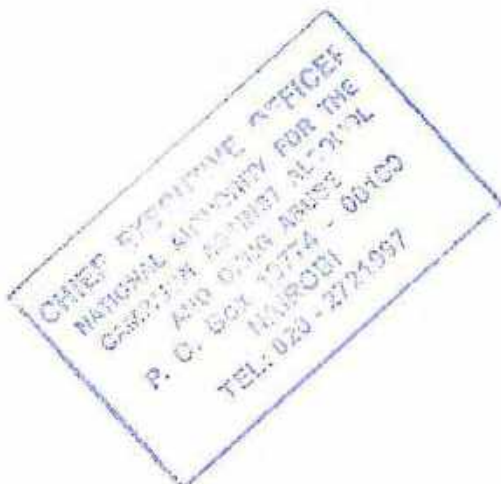 CHIEF EXECUTIVE OFFICER
NATIONAL AUTHORITY FOR THE
CAMPAIGN AGAINST ALCOHOL
AND DRUG ABUSE
P. O. BOX 10774 - 00100
NAIROBI
TEL: 020 - 2721997